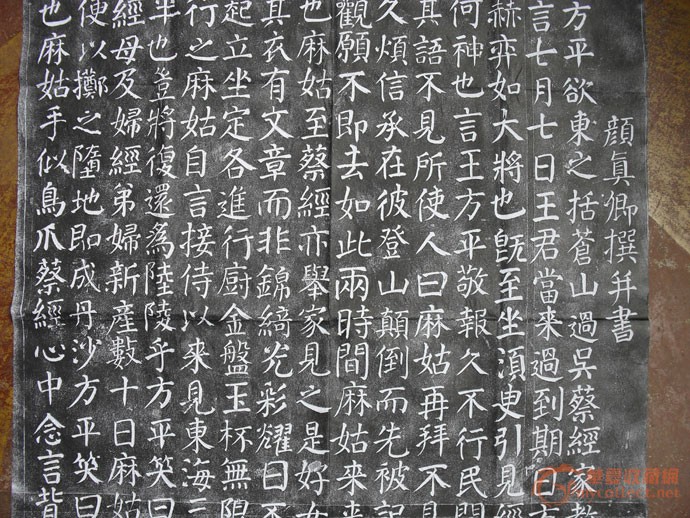 顔真卿撰并書
方平欲東之括蒼山過吳蔡經家教
言七月七日王君當来過到期日方
赫弈如大將也旣至坐湏臾引見經
何神也言王方平敬報久不行民間
其語不見所使人曰麻姑再拜不見
久煩信承在彼登山顛倒而先被記
觀願不即去如此兩時間麻姑来来
也麻姑至蔡經亦舉家見之是好女
其衣有文章而非錦綺光彩耀日不
起立坐定各進行廚金盤玉杯無限
行之麻姑自言接侍以来見東海三
半也豈將復還為陸陵乎方平笑曰
經母及婦經弟婦新産數十日麻姑
使以擲之墮地即成丹沙方平笑曰
也麻姑手似鳥爪蔡經心中念言背